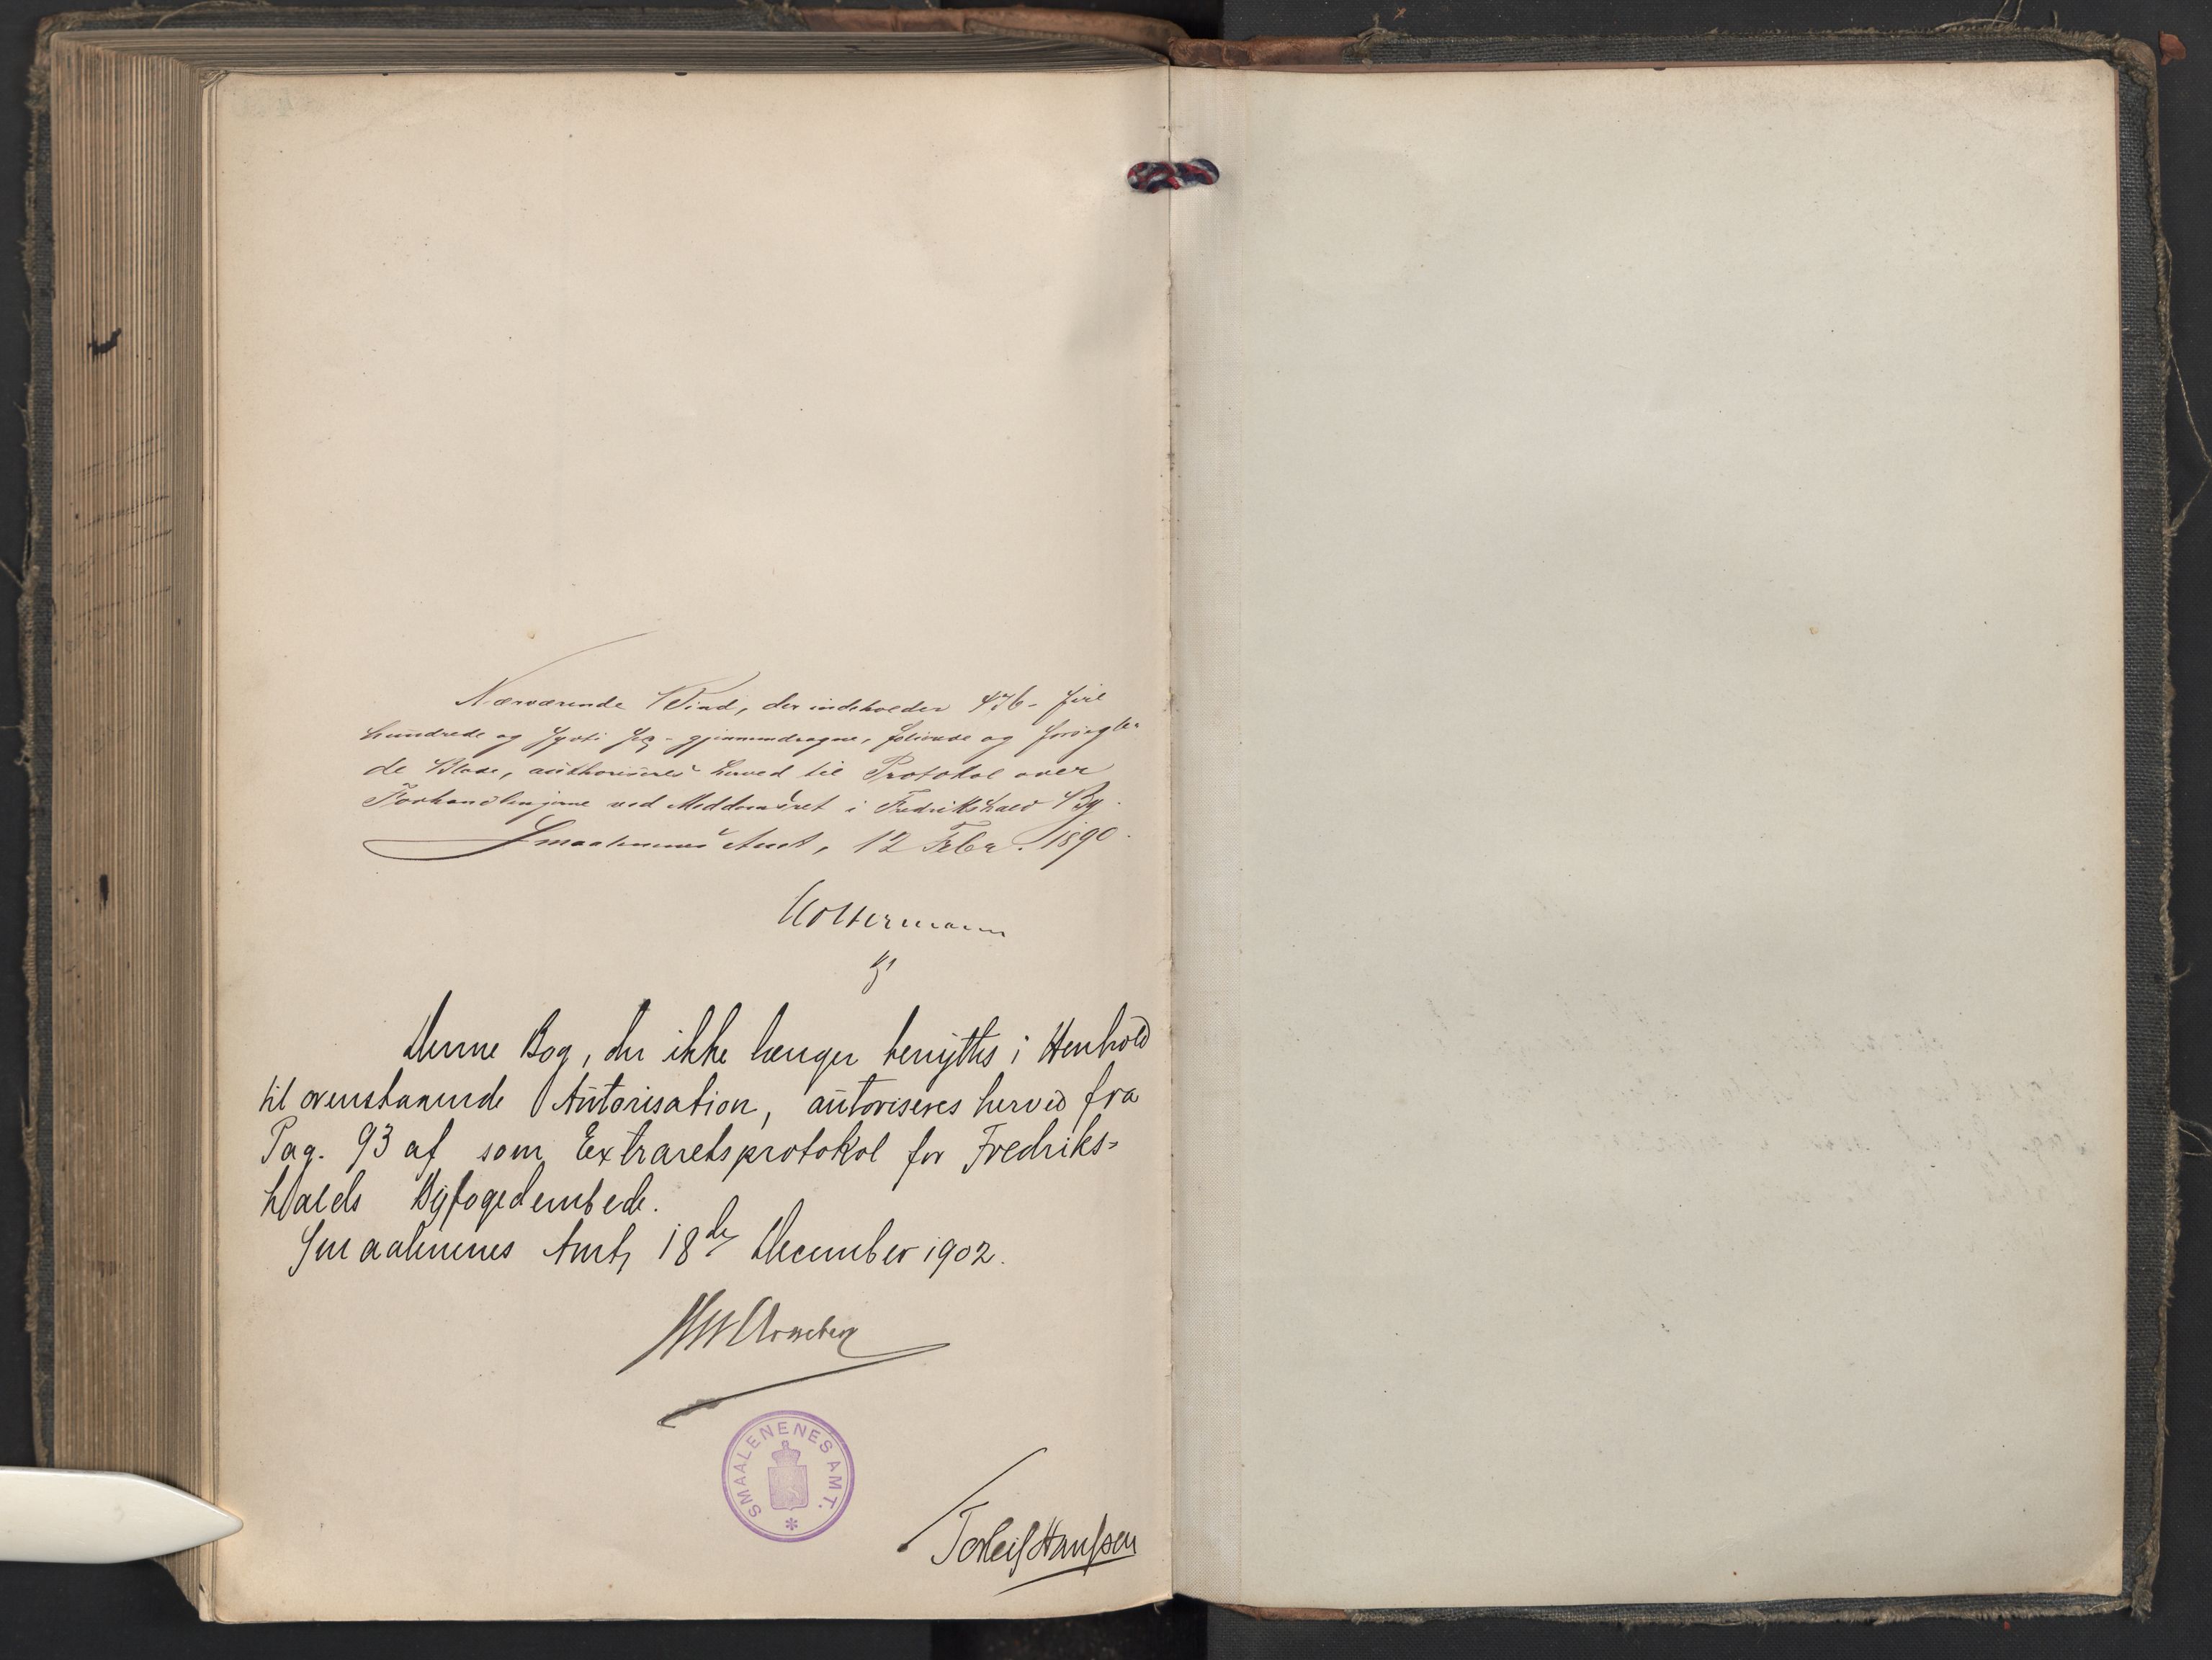 Nærværende Bind, der indeholder 476 - fire
hundrede og sytti sex - gjennemdragne, folierede og forsegle-
de Blade, authoriseres herved til Protokol over
Forhandlingerne ved Meddomsret i Fredrikshald By.
Smaalenenes Amt, 12 Febr. 1890.
Denne Bog, der ikke længer benyttes i Henhold
til ovenstaaende Autorisation, autoriseres herved fra
Pag. 93 af som Extraretsprotokol for Fredriks=
halds Byfogedembede.
Smaalenenes Amt, 18de December 1902.
SMAALENENES AMT.
Torleif Hanssen